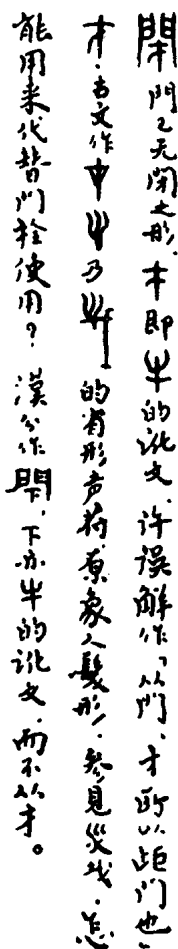 門已无闭之形、即的讹文、许误解作「从門、才所以距門也」
才、古文作乃的省形声符、原象人髮形、參見災、怎
能用来代替門栓使用？漢作、下亦的讹文、而不从才。